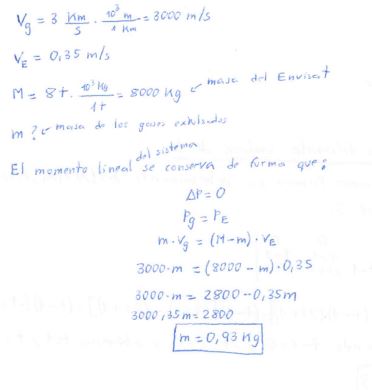 Vg = 3 Km/s · 10³ m/1 Km = 3000 m/s
VE = 0,35 m/s
M = 8t · 10³ Kg/1t = 8000 Kg ← masa del Envisat
m? ← masa de los gases expulsados
El momento lineal del sistema se conserva de forma que:
ΔP = 0
Pg = PE
m · Vg = (M-m) · VE
3000 · m = (8000 - m) · 0,35
3000 · m = 2800 - 0,35m
3000,35m = 2800
m = 0,93 Kg